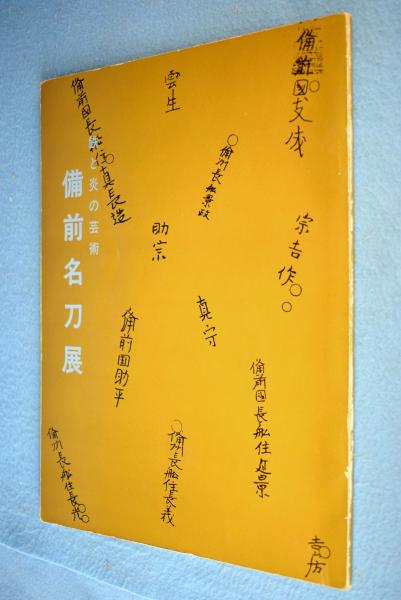 備前國友成
宗吉作
備前國長船住景
吉房
雲生
備州長船景政
助宗
真守
備前国助平
備州長船住長義
備前國長船住真長造
備州長船住長光
鉄と炎の芸術
備前名刀展